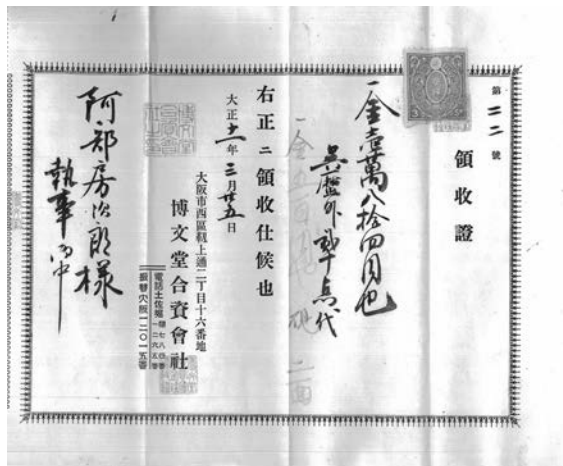 第二二號
領收證
一金壹萬八拾四円也
一金五百円也 硯 二面
右正ニ領收仕候也
大正十一年三月廿五日
大阪市西區靱上通二丁目十六番地
博文堂合資會社
電話土佐堀
振替大阪一二〇一五番
阿部房次郎様
執事御中